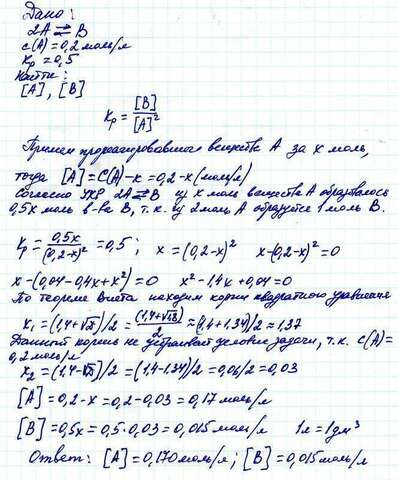 Дано:
2A ⇄ B
c(A) = 0,2 моль/л
Kр = 0,5
Найти:
[A], [B]
Kр = [B] / [A]²
Примем прореагировавшего вещества A за x моль,
тогда [A] = C(A) - x = 0,2 - x (моль/л)
Согласно УХР 2A ⇄ B из x моль вещества A образовалось
0,5x моль в-ва B, т.к. из 2 моль A образуется 1 моль B.
Kр = 0,5x / (0,2-x)² = 0,5; x = (0,2-x)² x-(0,2-x)² = 0
x-(0,04-0,4x+x²) = 0 x²-1,4x+0,04 = 0
По теореме Виета находим корни квадратного уравнения
x₁ = (1,4+√1,8)/2 = (1,4+√1,8)/2 ≈ (1,4+1,34)/2 ≈ 1,37
Данный корень не устраивает условие задачи, т.к. c(A) =
0,2 моль/л
x₂ = (1,4-√1,8)/2 = (1,4-1,34)/2 = 0,06/2 = 0,03
[A] = 0,2-x = 0,2-0,03 = 0,17 моль/л
[B] = 0,5x = 0,5·0,03 = 0,015 моль/л 1л = 1дм³
Ответ: [A] = 0,170 моль/л; [B] = 0,015 моль/л